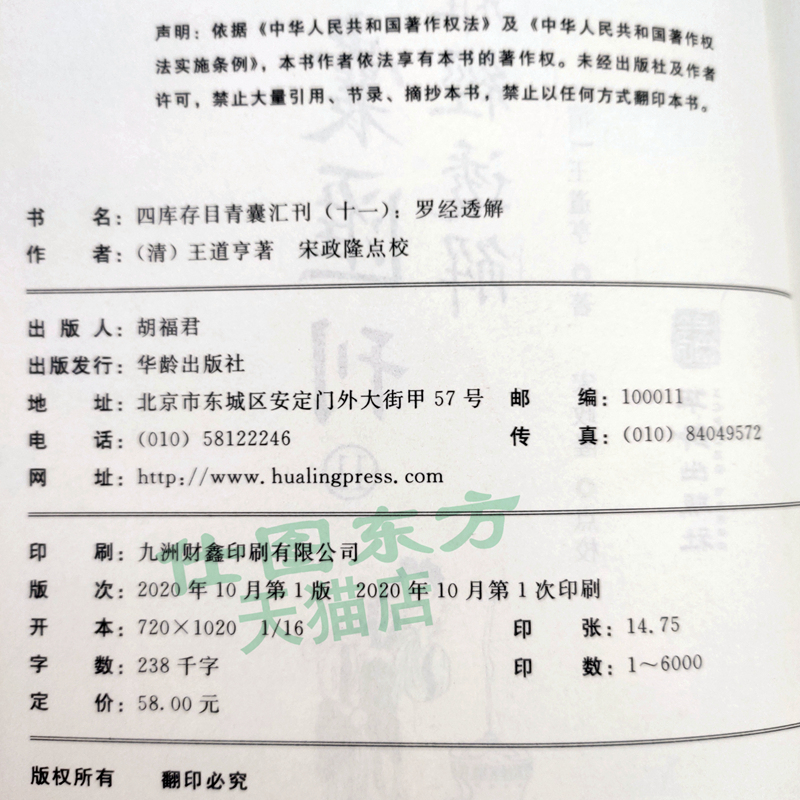 声明：依据《中华人民共和国著作权法》及《中华人民共和国著作权
法实施条例》，本书作者依法享有本书的著作权。未经出版社及作者
许可，禁止大量引用、节录、摘抄本书，禁止以任何方式翻印本书。
书 名：四库存目青囊汇刊（十一）：罗经透解
作 者：（清）王道亨著 宋政隆点校
出 版 人：胡福君
出版发行：华龄出版社
地 址：北京市东城区安定门外大街甲 57 号 邮 编：100011
电 话：（010）58122246 传 真：（010）84049572
网 址：http://www.hualingpress.com
仕图东方
天猫店
印 刷：九洲财鑫印刷有限公司
版 次：2020 年 10 月第 1 版 2020 年 10 月第 1 次印刷
开 本：720×1020 1/16 印 张：14.75
字 数：238 千字 印 数：1～6000
定 价：58.00 元
版权所有 翻印必究